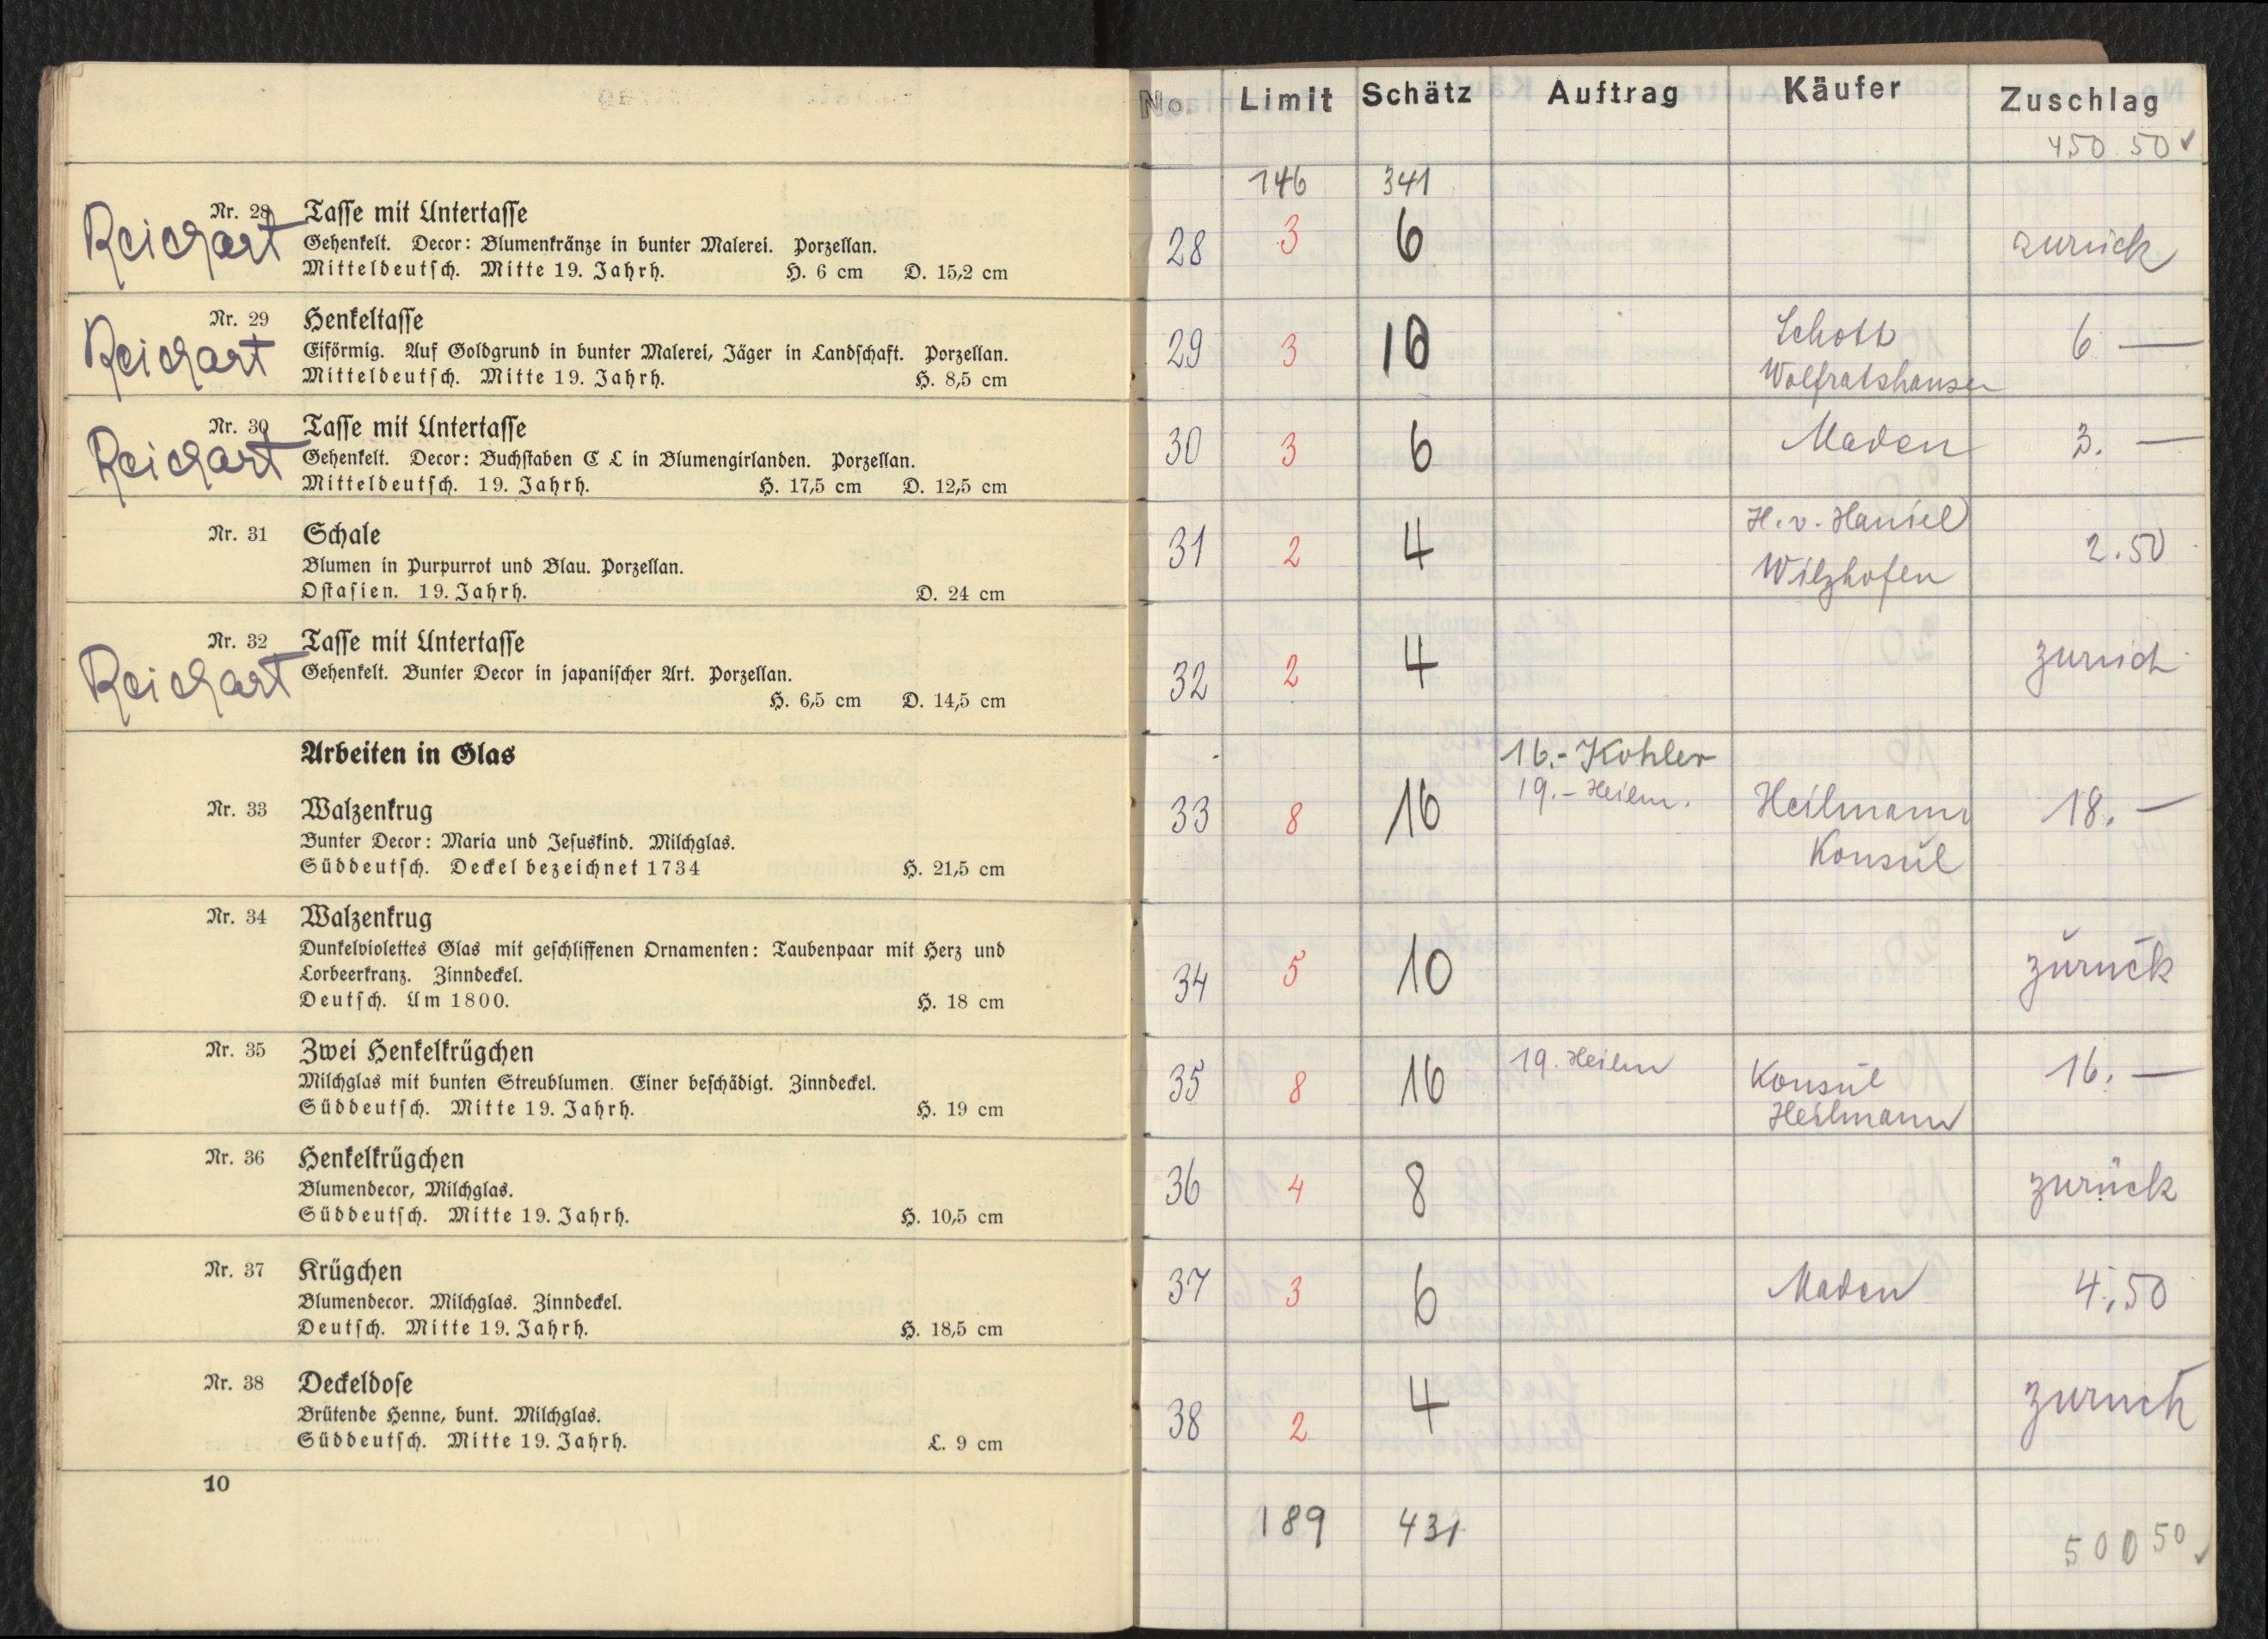 Nr. 28 Tasse mit Untertasse
Reichart
Gehenkelt. Decor: Blumenkränze in bunter Malerei. Porzellan.
Mitteldeutsch. Mitte 19. Jahrh. H. 6 cm D. 15,2 cm
Nr. 29 Henkeltasse
Reichart
Eiförmig. Auf Goldgrund in bunter Malerei, Jäger in Landschaft. Porzellan.
Mitteldeutsch. Mitte 19. Jahrh. H. 8,5 cm
Nr. 30 Tasse mit Untertasse
Reichart
Gehenkelt. Decor: Buchstaben C L in Blumengirlanden. Porzellan.
Mitteldeutsch. 19. Jahrh. H. 17,5 cm D. 12,5 cm
Nr. 31 Schale
Blumen in Purpurrot und Blau. Porzellan.
Ostasien. 19. Jahrh. D. 24 cm
Nr. 32 Tasse mit Untertasse
Reichart
Gehenkelt. Bunter Decor in japanischer Art. Porzellan.
H. 6,5 cm D. 14,5 cm
Arbeiten in Glas
Nr. 33 Walzenkrug
Bunter Decor: Maria und Jesuskind. Milchglas.
Süddeutsch. Deckel bezeichnet 1734 H. 21,5 cm
Nr. 34 Walzenkrug
Dunkelviolettes Glas mit geschliffenen Ornamenten: Taubenpaar mit Herz und
Lorbeerkranz. Zinndeckel.
Deutsch. Um 1800. H. 18 cm
Nr. 35 Zwei Henkelkrügchen
Milchglas mit bunten Streublumen. Einer beschädigt. Zinndeckel.
Süddeutsch. Mitte 19. Jahrh. H. 19 cm
Nr. 36 Henkelkrügchen
Blumendecor, Milchglas.
Süddeutsch. Mitte 19. Jahrh. H. 10,5 cm
Nr. 37 Krügchen
Blumendecor. Milchglas. Zinndeckel.
Deutsch. Mitte 19. Jahrh. H. 18,5 cm
Nr. 38 Deckeldose
Brütende Henne, bunt. Milchglas.
Süddeutsch. Mitte 19. Jahrh. L. 9 cm
10
No. Limit Schätz Auftrag Käufer Zuschlag
450.50 ✓
146 341
28 3 6 zurück
29 3 10 Schott 6 —
Wolfratshausen
30 3 6 Maden 3. —
31 2 4 H. v. Haniel 2.50
Wilzhofen
32 2 4 zurück
16.- Kohler
19.- Heilm.
33 8 16 Heilmann 18. —
Konsul
34 5 10 zurück
35 8 16 19. Heilm Konsul 16. —
Heilmann
36 4 8 zurück
37 3 6 Maden 4.50
38 2 4 zurück
189 431 500 50 ✓